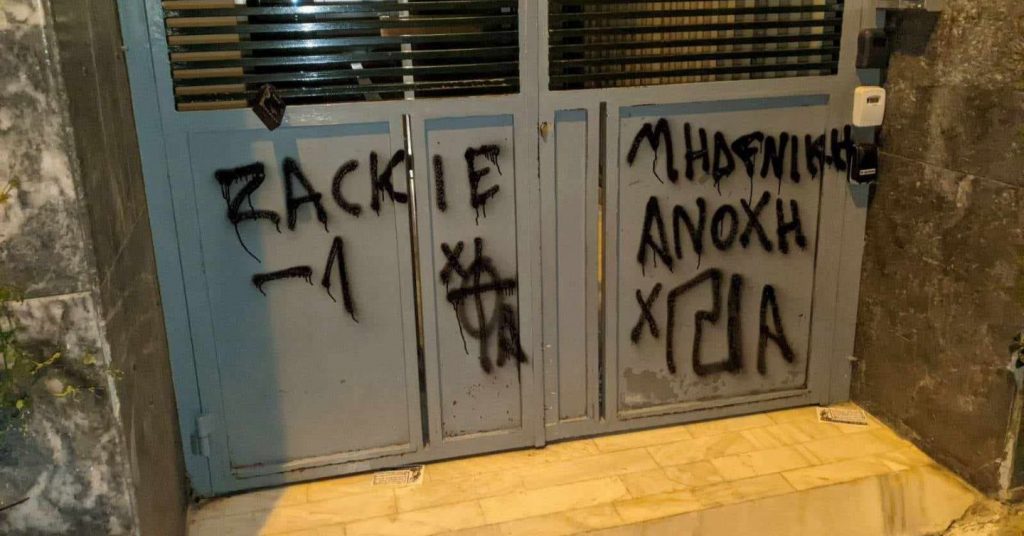 ZACKIE
-1
ΧΑ
ΜΗΔΕΝΙΚΗ
ΑΝΟΧΗ
Χ Α